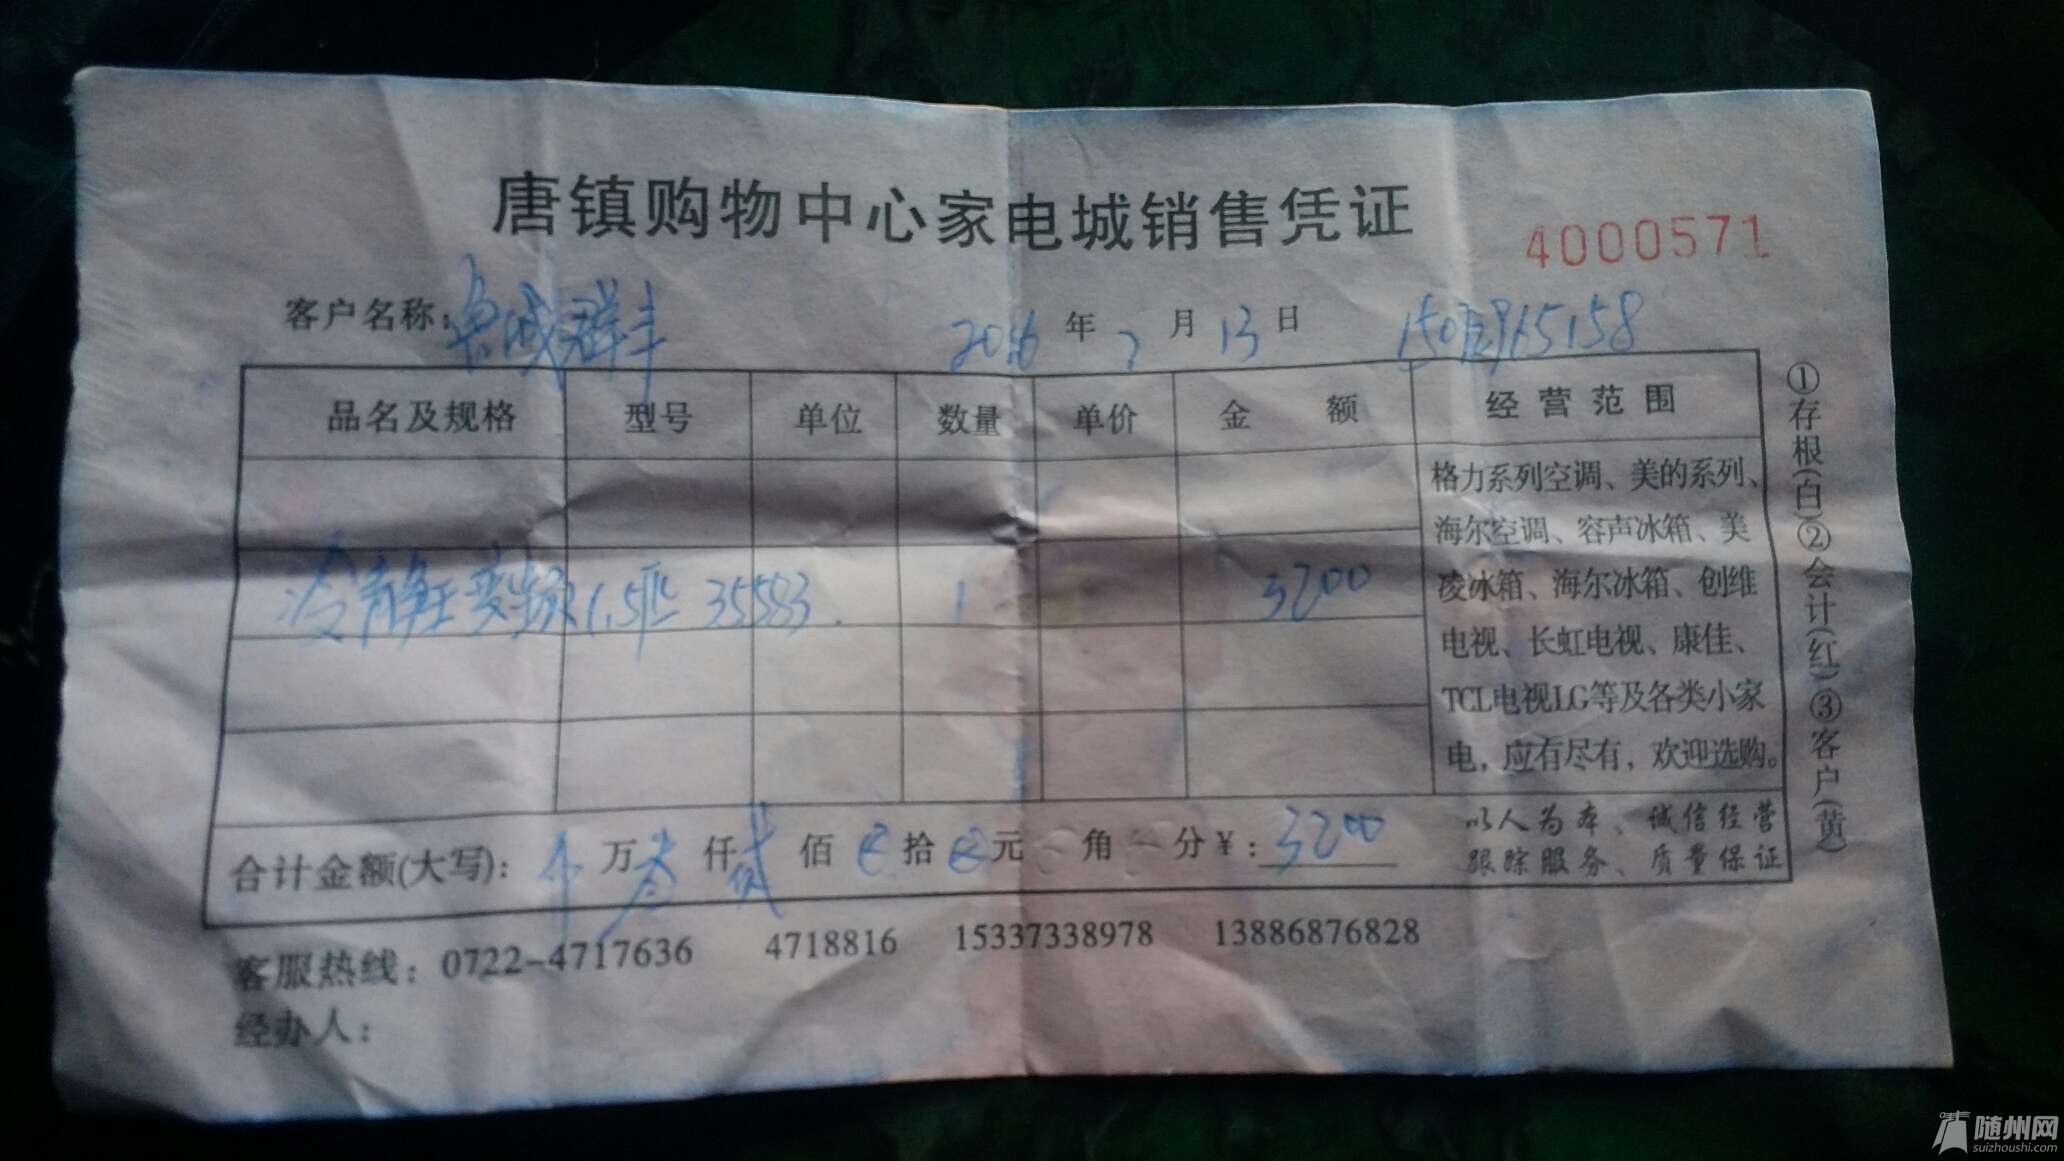 唐镇购物中心家电城销售凭证
4000571
客户名称： 群丰 2016年7月13日
品名及规格 型号 单位 数量 单价 金额 经营范围
冷静王变频1.5匹 35583 1 3200
格力系列空调、美的系列、
海尔空调、容声冰箱、美
凌冰箱、海尔冰箱、创维
电视、长虹电视、康佳、
TCL电视LG等及各类小家
电，应有尽有，欢迎选购。
合计金额(大写)： 万叁仟贰佰 拾 元 角 分¥：3200
以人为本、诚信经营
跟踪服务、质量保证
客服热线：0722-4717636 4718816 15337338978 13886876828
经办人：
①存根(白)②会计(红)③客户(黄)
随州网
suizhoushi.com